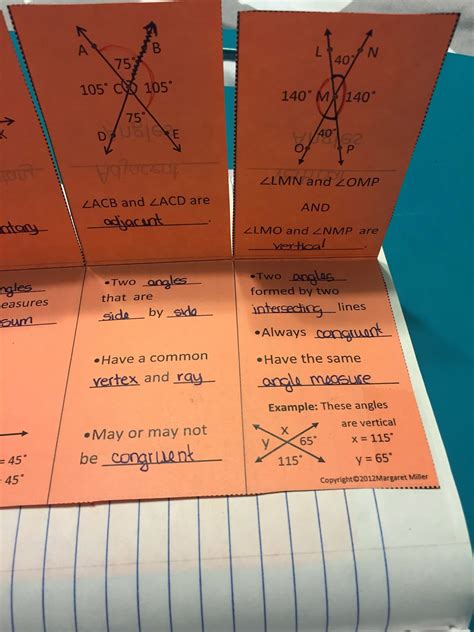 A
B
75°
105° C 105°
75°
D
E
∠ACB and ∠ACD are
adjacent.
L
N
40°
140° M 140°
40°
O
P
∠LMN and ∠OMP
AND
∠LMO and ∠NMP are
vertical.
•Two angles
that are
side by side
•Have a common
vertex and ray
•May or may not
be congruent
•Two angles
formed by two
intersecting lines
•Always congruent
•Have the same
angle measure
Example: These angles
are vertical
x = 115°
y = 65°
x
y 65°
115°
Copyright©2012Margaret Miller
angles
measures
sum
= 45°
= 45°
Adjacent
Angles
Angles